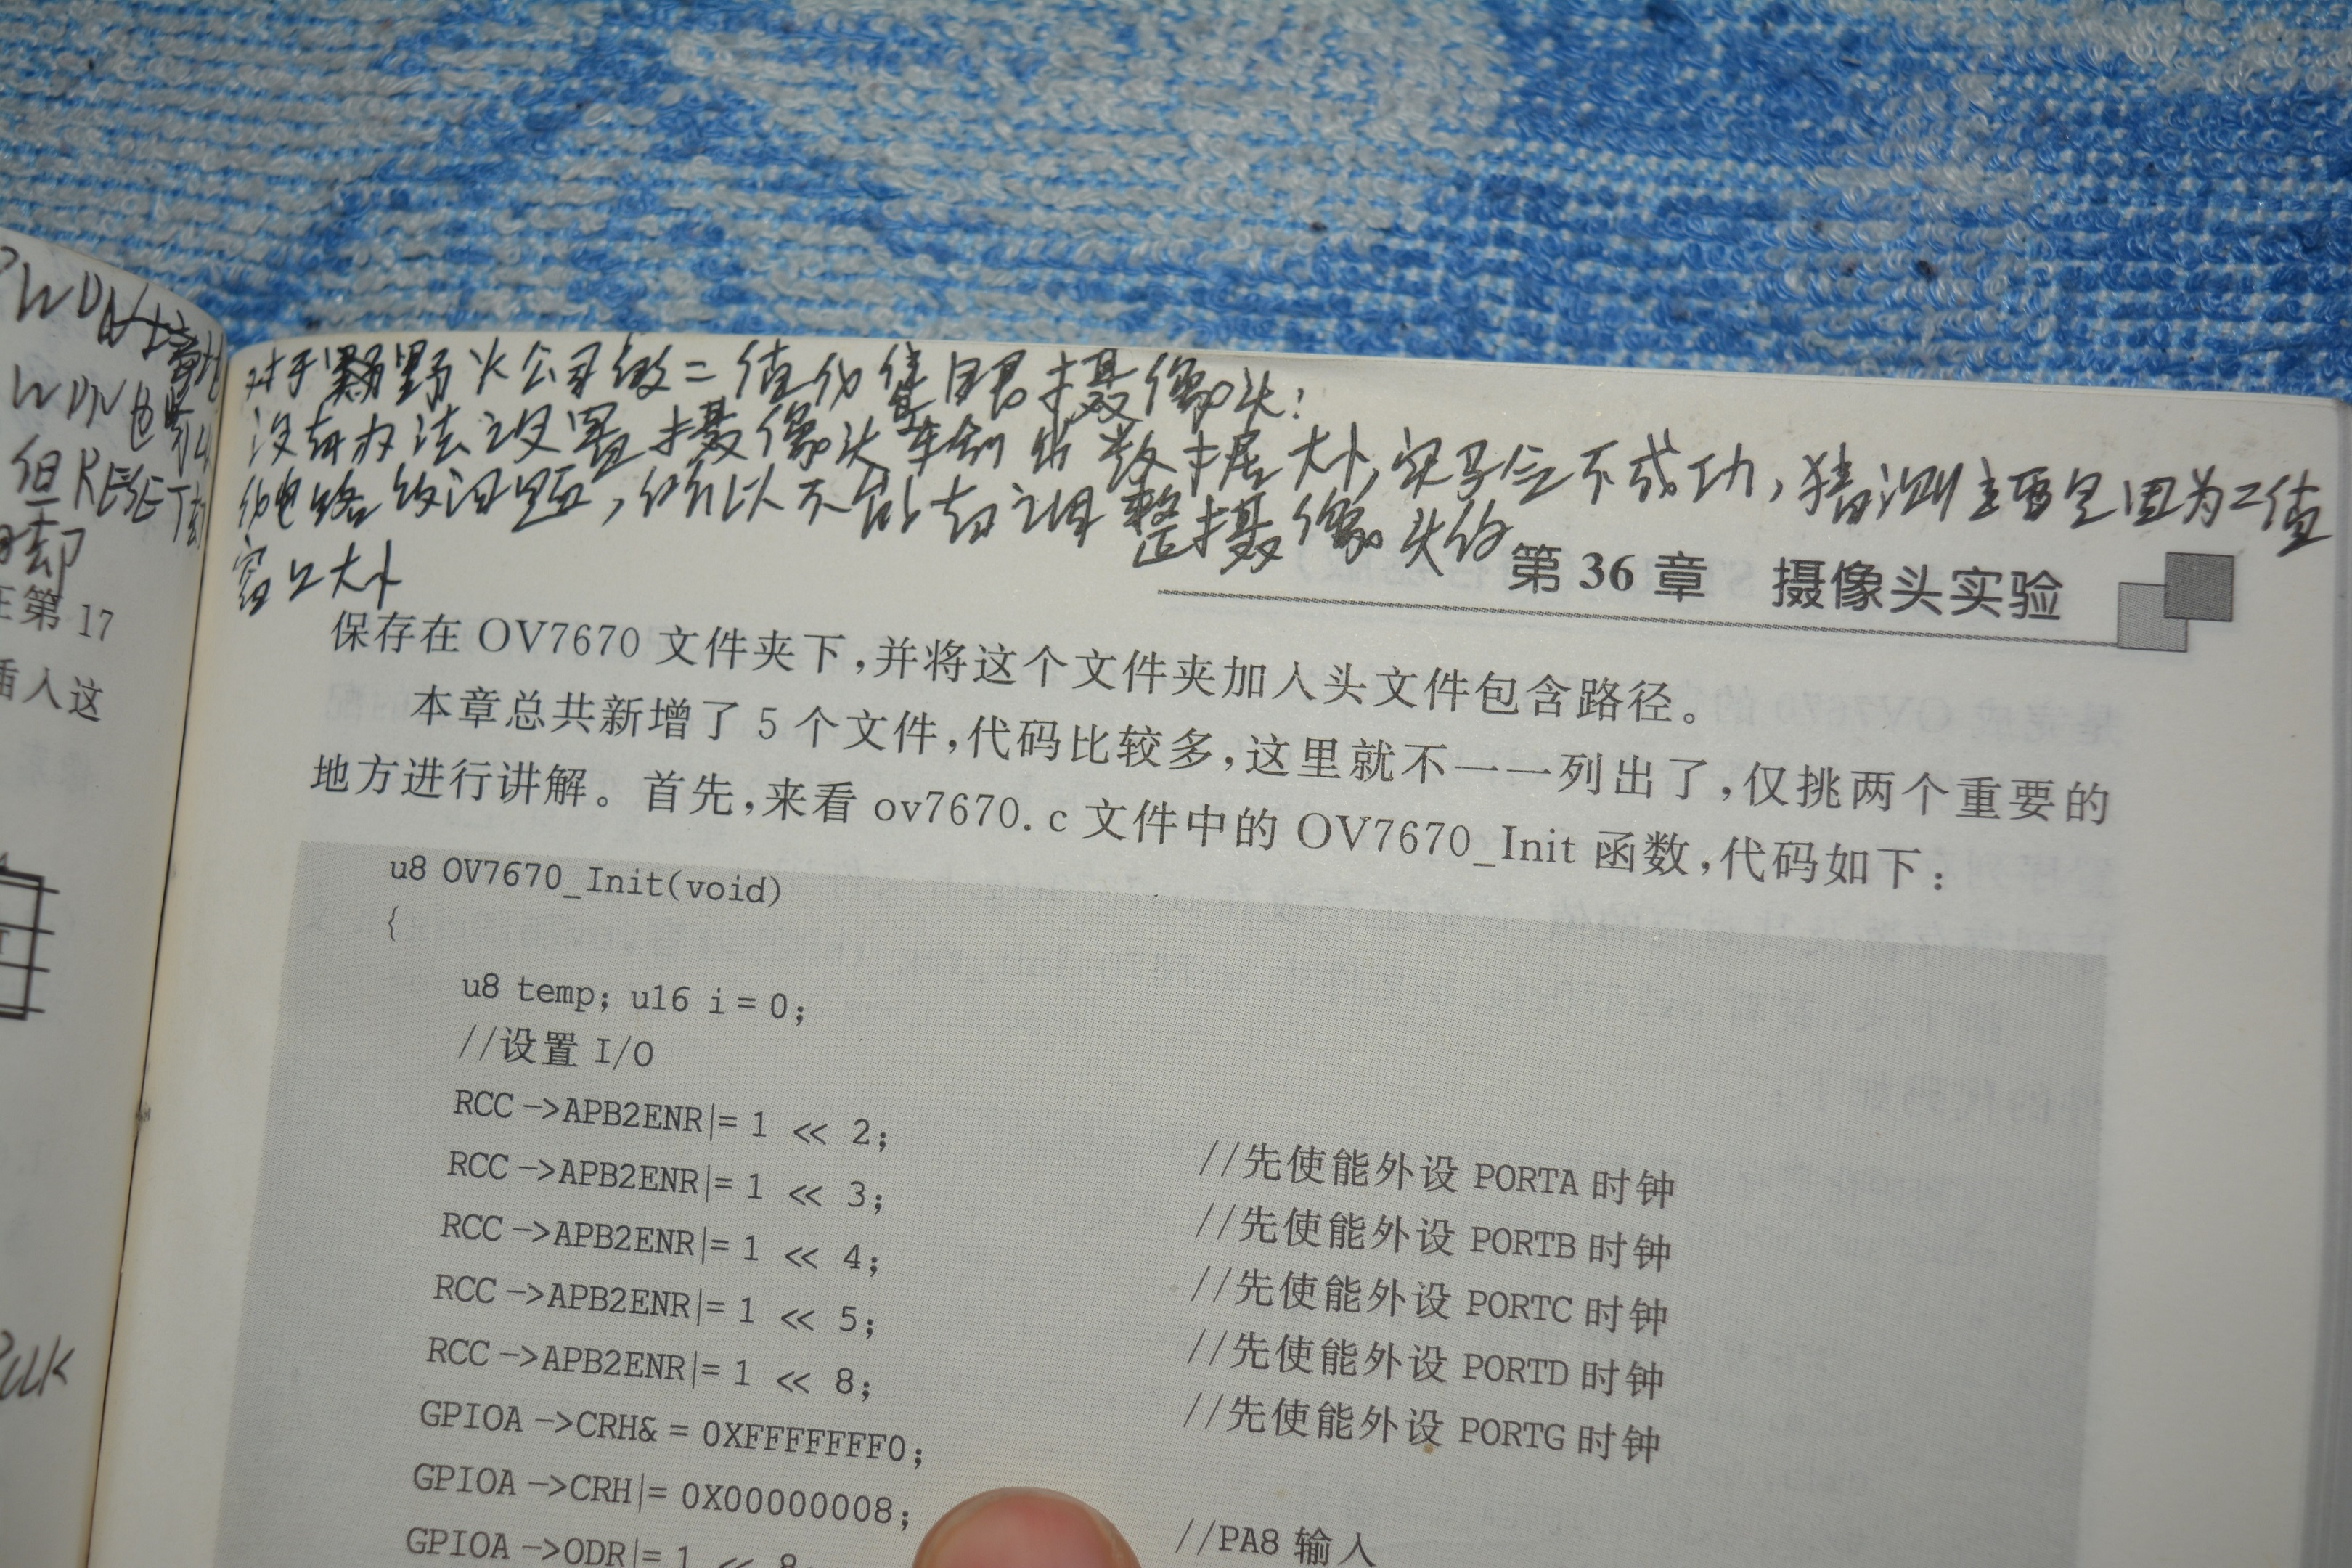 PWDN
WDN也
但RESET却
却
在第 17
插入这
对于野火公司做二值化鹰眼摄像头:
没有办法设置摄像头输出数据大小,实验不成功,猜测主要是因为二值
化电路的问题,所以不能去调整摄像头的
窗口大小
第 36 章 摄像头实验
保存在 OV7670 文件夹下,并将这个文件夹加入头文件包含路径。
本章总共新增了 5 个文件,代码比较多,这里就不一一列出了,仅挑两个重要的
地方进行讲解。首先,来看 ov7670.c 文件中的 OV7670_Init 函数,代码如下:
u8 OV7670_Init(void)
{
u8 temp; u16 i = 0;
//设置 I/O
RCC ->APB2ENR|= 1 << 2; //先使能外设 PORTA 时钟
RCC ->APB2ENR|= 1 << 3; //先使能外设 PORTB 时钟
RCC ->APB2ENR|= 1 << 4; //先使能外设 PORTC 时钟
RCC ->APB2ENR|= 1 << 5; //先使能外设 PORTD 时钟
RCC ->APB2ENR|= 1 << 8; //先使能外设 PORTG 时钟
GPIOA ->CRH& = 0XFFFFFFF0;
GPIOA ->CRH|= 0X00000008; //PA8 输入
GPIOA ->ODR|= 1 << 8;